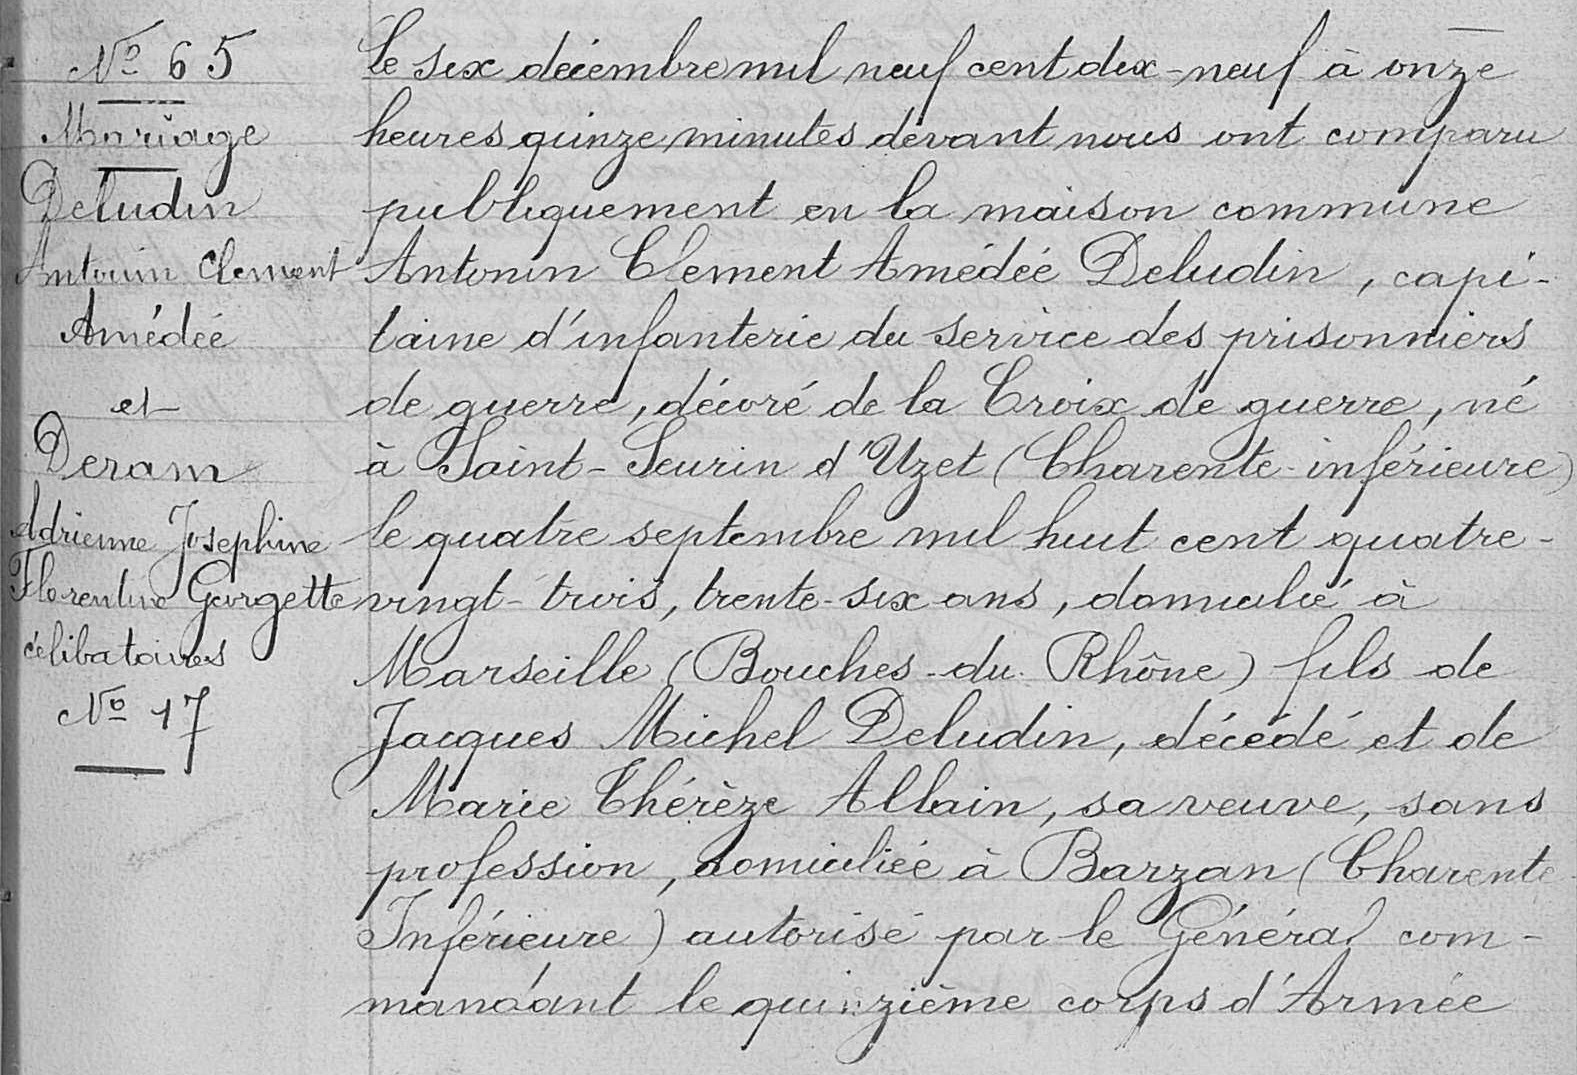 Nº 65
Mariage
Deludin
Antonin Clement
Amédée
et
Deram
Adrienne Josephine
Florentine Georgette
célibataires
Nº 17
Le six décembre mil neuf cent dix-neuf à onze
heures quinze minutes devant nous ont comparu
publiquement en la maison commune
Antonin Clement Amédée Deludin, capi-
taine d'infanterie du service des prisonniers
de guerre, décoré de la Croix de guerre, né
à Saint-Seurin d'Uzet (Charente-inférieure)
le quatre septembre mil huit cent quatre-
vingt-trois, trente-six ans, domicilié à
Marseille (Bouches-du-Rhône) fils de
Jacques Michel Deludin, décédé et de
Marie Thérèze Allain, sa veuve, sans
profession, domiciliée à Barzan (Charente-
Inférieure) autorisé par le Général com-
mandant le quinzième corps d'Armée